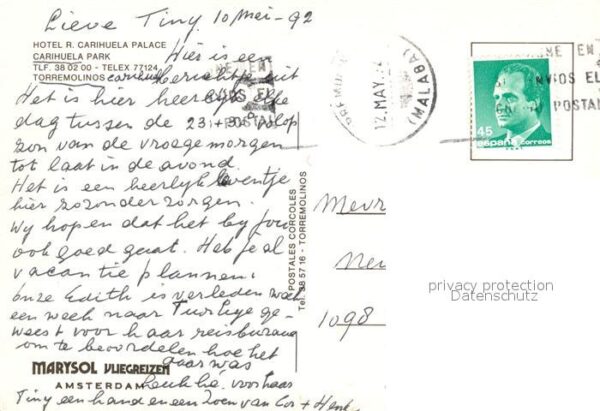 Lieve Tiny 10 Mei - 92
HOTEL R. CARIHUELA PALACE
CARIHUELA PARK
TLF. 38 02 00 - TELEX 77124
TORREMOLINOS
Hier is een
berichtje uit
Het is hier heerlijk elke
dag tussen de 23 + 30 op
zon van de vroege morgen
tot laat in de avond.
Het is een heerlijk leventje
hier zo zonder zorgen.
Wij hopen dat het bij jou
ook goed gaat. Heb je al
vacantie plannen.
onze Edith is verleden week
een week naar Turkije ge-
weest voor haar reisbureau
om te beoordelen hoe het
daar was
MARYSOL VLIEGREIZEN
AMSTERDAM
leuk he. voor haar
Tiny een hand en een zoen van Cor + Henk
POSTALES CORCOLES
Tel. 38 57 16 - TORREMOLINOS
12 MAY
(MALAGA)
45
españa correos
Mevr
1098
privacy protection
Datenschutz